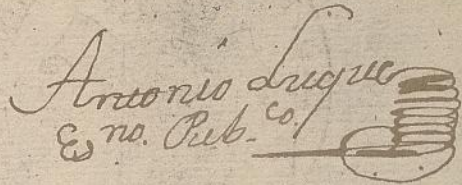 Antonio Luque
Esno. Pub.co.